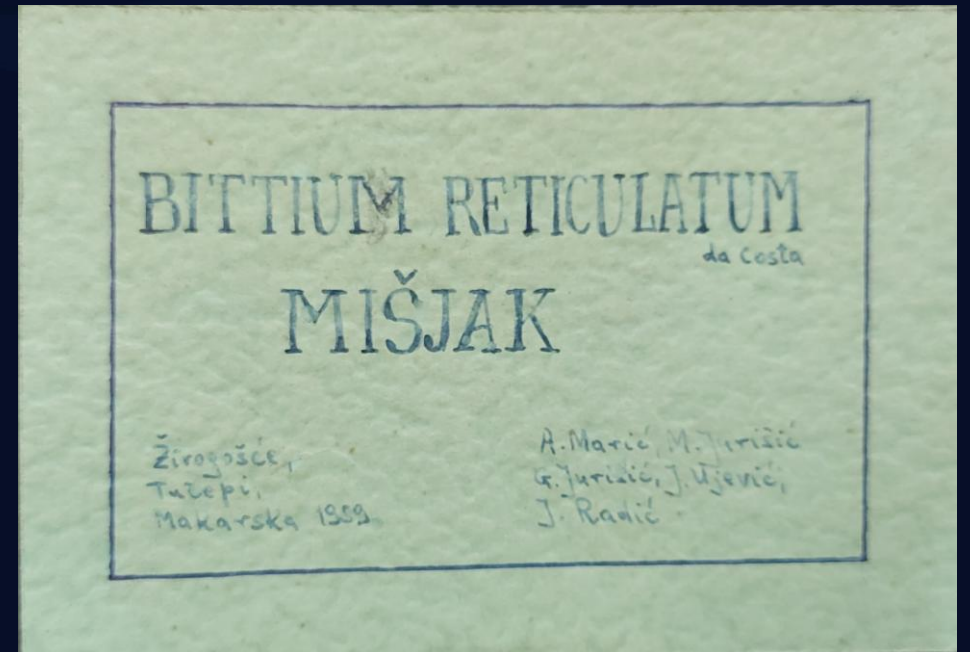 BITTIUM RETICULATUM
da Costa
MIŠJAK
Žirogošće,
Tučepi,
Makarska 1959.
A. Marić, M. Jurišić
G. Jurišić, J. Ujević,
J. Radić